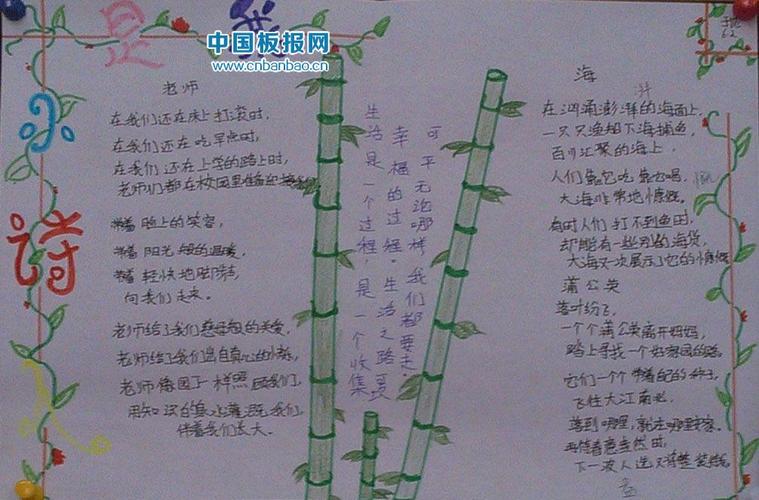 小
诗
中国板报网
www.cnbanbao.cn
老师
在我们还在床上打滚时，
在我们还在吃早点时，
在我们还在上学的路上时，
老师们都在校园里
带着脸上的笑容，
带着阳光般的温暖，
带着轻快地脚步
向我们走来。
老师给了我们慈母般的关爱，
老师给了我们温自真心的
老师像园丁一样照顾我们，
用知识的泉水灌溉我们，
伴着我们长大。
生活是一个过程，是一个收集
幸福的过程。生活之路
可平无论哪样，我们都要走。
海
湃
在汹涌澎湃的海面上，
一只只渔船下海捕鱼，
百川汇聚的海上，
人们靠它吃靠它喝，
大海非常地慷慨。
有时人们打不到鱼用，
却能有一些别的海货，
大海又一次展示了它的慷慨
蒲公英
落叶纷飞，
一个个蒲公英离开妈妈，
踏上寻找一个好家园的路，
它们一个个带着自己的种子，
飞往大江南北，
落到哪里，就在哪里安家。
下一波人选又